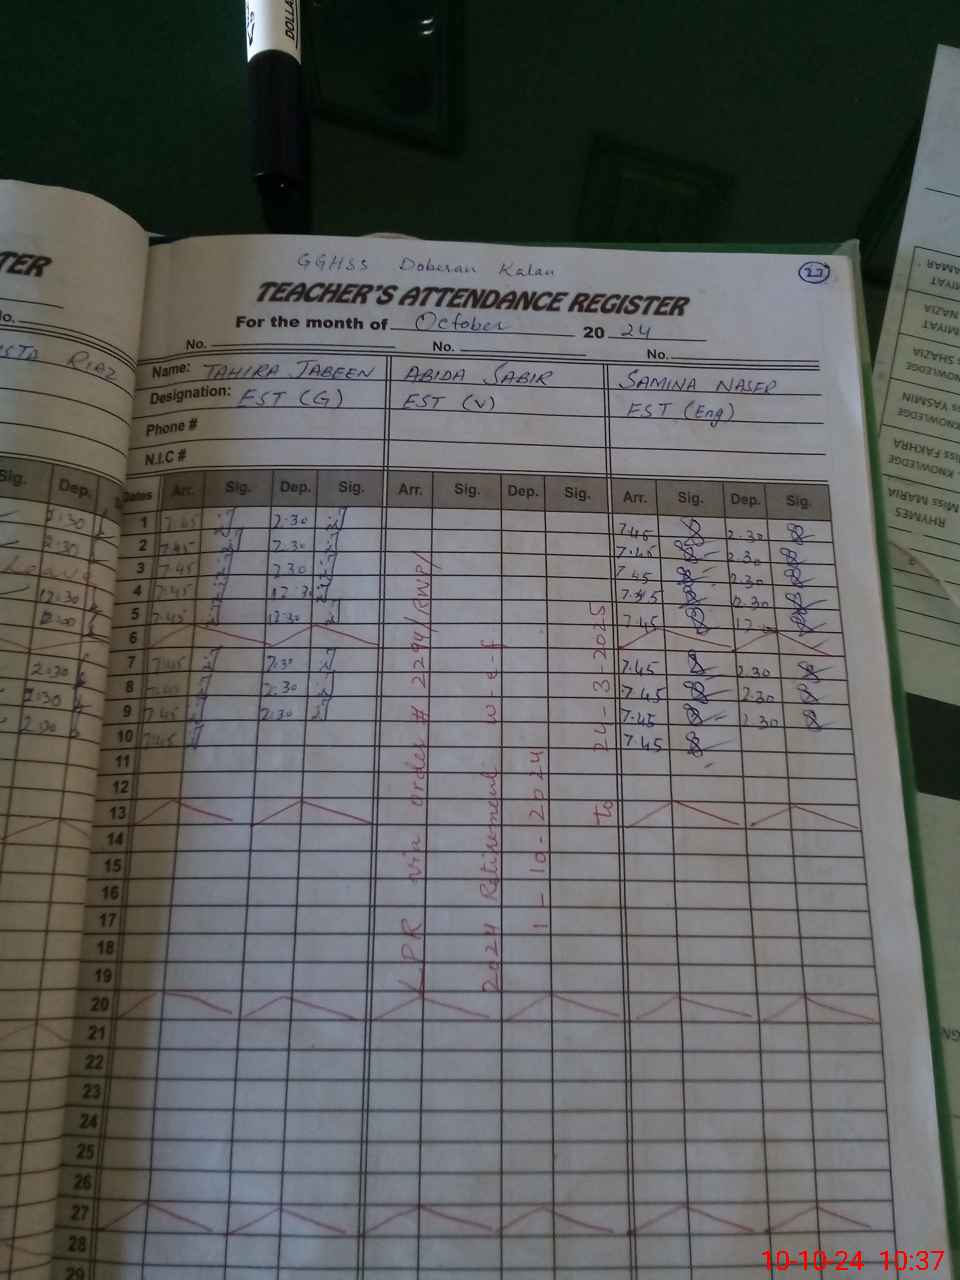 DOLLA
TER
GGHSS Doberan Kalan
27
TEACHER'S ATTENDANCE REGISTER
For the month of October 20 24
No. No. No.
Name: TAHIRA JABEEN ABIDA SABIR SAMINA NASER
RIAZ
Designation: EST (G) EST (V) EST (Eng)
Phone #
N.I.C #
Sig. Dep. Dates Arr. Sig. Dep. Sig. Arr. Sig. Dep. Sig. Arr. Sig. Dep. Sig.
2:30 1 7:45 2:30 7.45 2.30
2:30 2 7:45 2:30 7.45 2.30
Leave 3 7:45 2:30 7.45 2.30
12:30 4 7:45 12:30 7.45 2.30
5 7:45 12:30 7.45
6
2:30 7 7:45 2:30 7.45 2.30
2:30 8 7:45 2:30 7.45 2.30
2:30 9 7:45 2:30 7.45 2.30
10 7:45 7.45
11
12
13
14
15
16
17
18
19
20
21
22
23
24
25
26
27
28
29
LPR via order # 2294/RWP/
2024 Retirement w-e-f
1-10-2024
to 24-3-2025
AMAR
MIYAT
NAZIA
MIYAT
SHAZIA
KNOWLEDGE
YASMIN
KNOWLEDGE
Miss FAKHRA
KNOWLEDGE
Miss MARIA
RHYMES
10-10-24 10:37